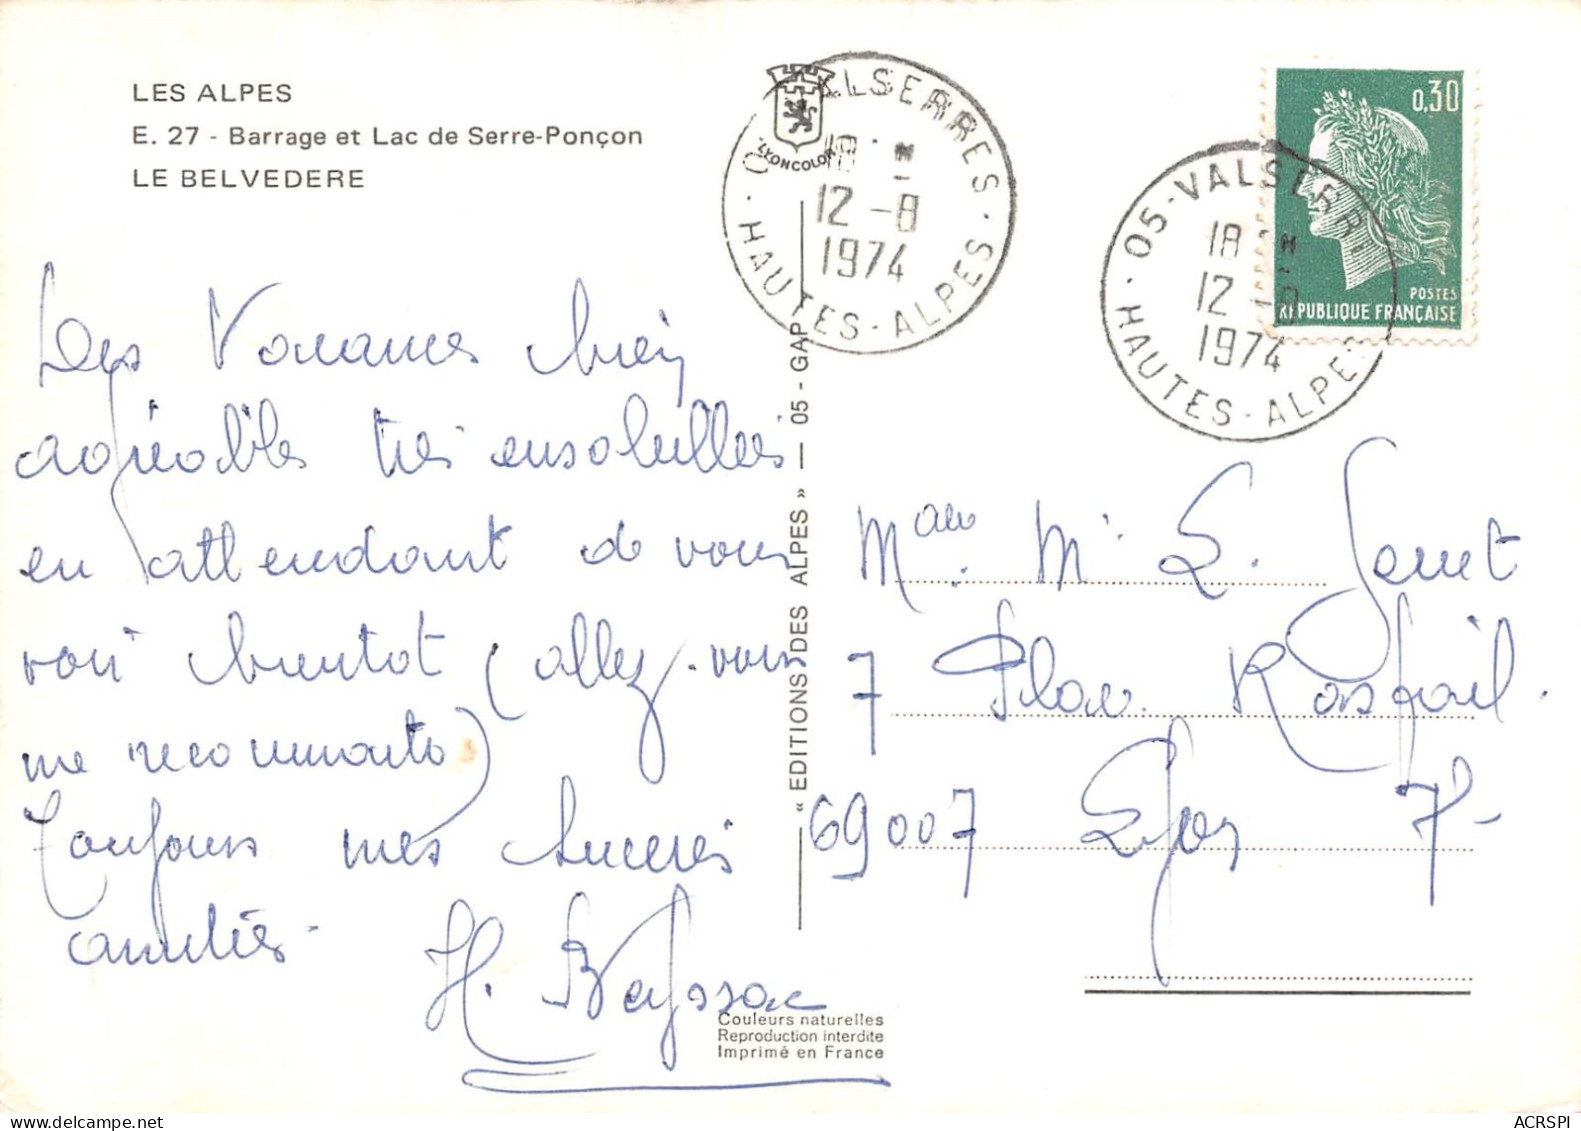 LES ALPES
E. 27 - Barrage et Lac de Serre-Ponçon
LE BELVEDERE
Des Vacances bien
agréables très ensoleillées
en attendant de vous
voir bientot (allez-vous
me reconnaitre)
Toujours mes sincères
amitiés.
H. Bayssac
« EDITIONS DES ALPES » — 05 - GAP
LYONCOLOR
VALSERRES
18
12 -8
1974
HAUTES-ALPES
05-VALSERRES
18
12 -8
1974
HAUTES-ALPES
0,30
POSTES
REPUBLIQUE FRANÇAISE
Mme. Mr L.
7 Place Raspail.
69007 Lyon 7e
Couleurs naturelles
Reproduction interdite
Imprimé en France
ACRSPI